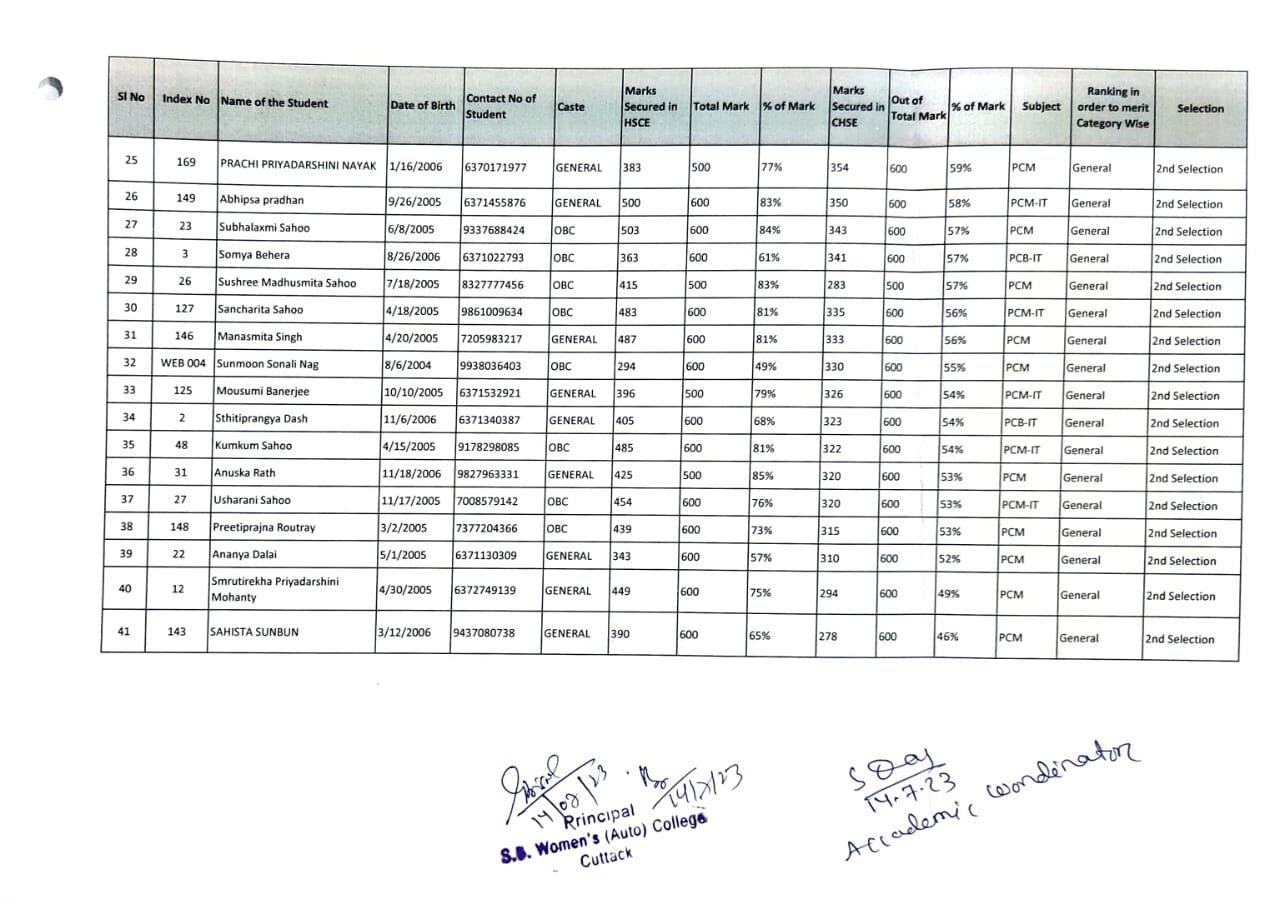 Sl No | Index No | Name of the Student | Date of Birth | Contact No of Student | Caste | Marks Secured in HSCE | Total Mark | % of Mark | Marks Secured in CHSE | Out of Total Mark | % of Mark | Subject | Ranking in order to merit Category Wise | Selection
25 | 169 | PRACHI PRIYADARSHINI NAYAK | 1/16/2006 | 6370171977 | GENERAL | 383 | 500 | 77% | 354 | 600 | 59% | PCM | General | 2nd Selection
26 | 149 | Abhipsa pradhan | 9/26/2005 | 6371455876 | GENERAL | 500 | 600 | 83% | 350 | 600 | 58% | PCM-IT | General | 2nd Selection
27 | 23 | Subhalaxmi Sahoo | 6/8/2005 | 9337688424 | OBC | 503 | 600 | 84% | 343 | 600 | 57% | PCM | General | 2nd Selection
28 | 3 | Somya Behera | 8/26/2006 | 6371022793 | OBC | 363 | 600 | 61% | 341 | 600 | 57% | PCB-IT | General | 2nd Selection
29 | 26 | Sushree Madhusmita Sahoo | 7/18/2005 | 8327777456 | OBC | 415 | 500 | 83% | 283 | 500 | 57% | PCM | General | 2nd Selection
30 | 127 | Sancharita Sahoo | 4/18/2005 | 9861009634 | OBC | 483 | 600 | 81% | 335 | 600 | 56% | PCM-IT | General | 2nd Selection
31 | 146 | Manasmita Singh | 4/20/2005 | 7205983217 | GENERAL | 487 | 600 | 81% | 333 | 600 | 56% | PCM | General | 2nd Selection
32 | WEB 004 | Sunmoon Sonali Nag | 8/6/2004 | 9938036403 | OBC | 294 | 600 | 49% | 330 | 600 | 55% | PCM | General | 2nd Selection
33 | 125 | Mousumi Banerjee | 10/10/2005 | 6371532921 | GENERAL | 396 | 500 | 79% | 326 | 600 | 54% | PCM-IT | General | 2nd Selection
34 | 2 | Sthitiprangya Dash | 11/6/2006 | 6371340387 | GENERAL | 405 | 600 | 68% | 323 | 600 | 54% | PCB-IT | General | 2nd Selection
35 | 48 | Kumkum Sahoo | 4/15/2005 | 9178298085 | OBC | 485 | 600 | 81% | 322 | 600 | 54% | PCM-IT | General | 2nd Selection
36 | 31 | Anuska Rath | 11/18/2006 | 9827963331 | GENERAL | 425 | 500 | 85% | 320 | 600 | 53% | PCM | General | 2nd Selection
37 | 27 | Usharani Sahoo | 11/17/2005 | 7008579142 | OBC | 454 | 600 | 76% | 320 | 600 | 53% | PCM-IT | General | 2nd Selection
38 | 148 | Preetiprajna Routray | 3/2/2005 | 7377204366 | OBC | 439 | 600 | 73% | 315 | 600 | 53% | PCM | General | 2nd Selection
39 | 22 | Ananya Dalai | 5/1/2005 | 6371130309 | GENERAL | 343 | 600 | 57% | 310 | 600 | 52% | PCM | General | 2nd Selection
40 | 12 | Smrutirekha Priyadarshini Mohanty | 4/30/2005 | 6372749139 | GENERAL | 449 | 600 | 75% | 294 | 600 | 49% | PCM | General | 2nd Selection
41 | 143 | SAHISTA SUNBUN | 3/12/2006 | 9437080738 | GENERAL | 390 | 600 | 65% | 278 | 600 | 46% | PCM | General | 2nd Selection
14/7/23
Principal
S.B. Women's (Auto) College
Cuttack
14.7.23
Accademic coordinator